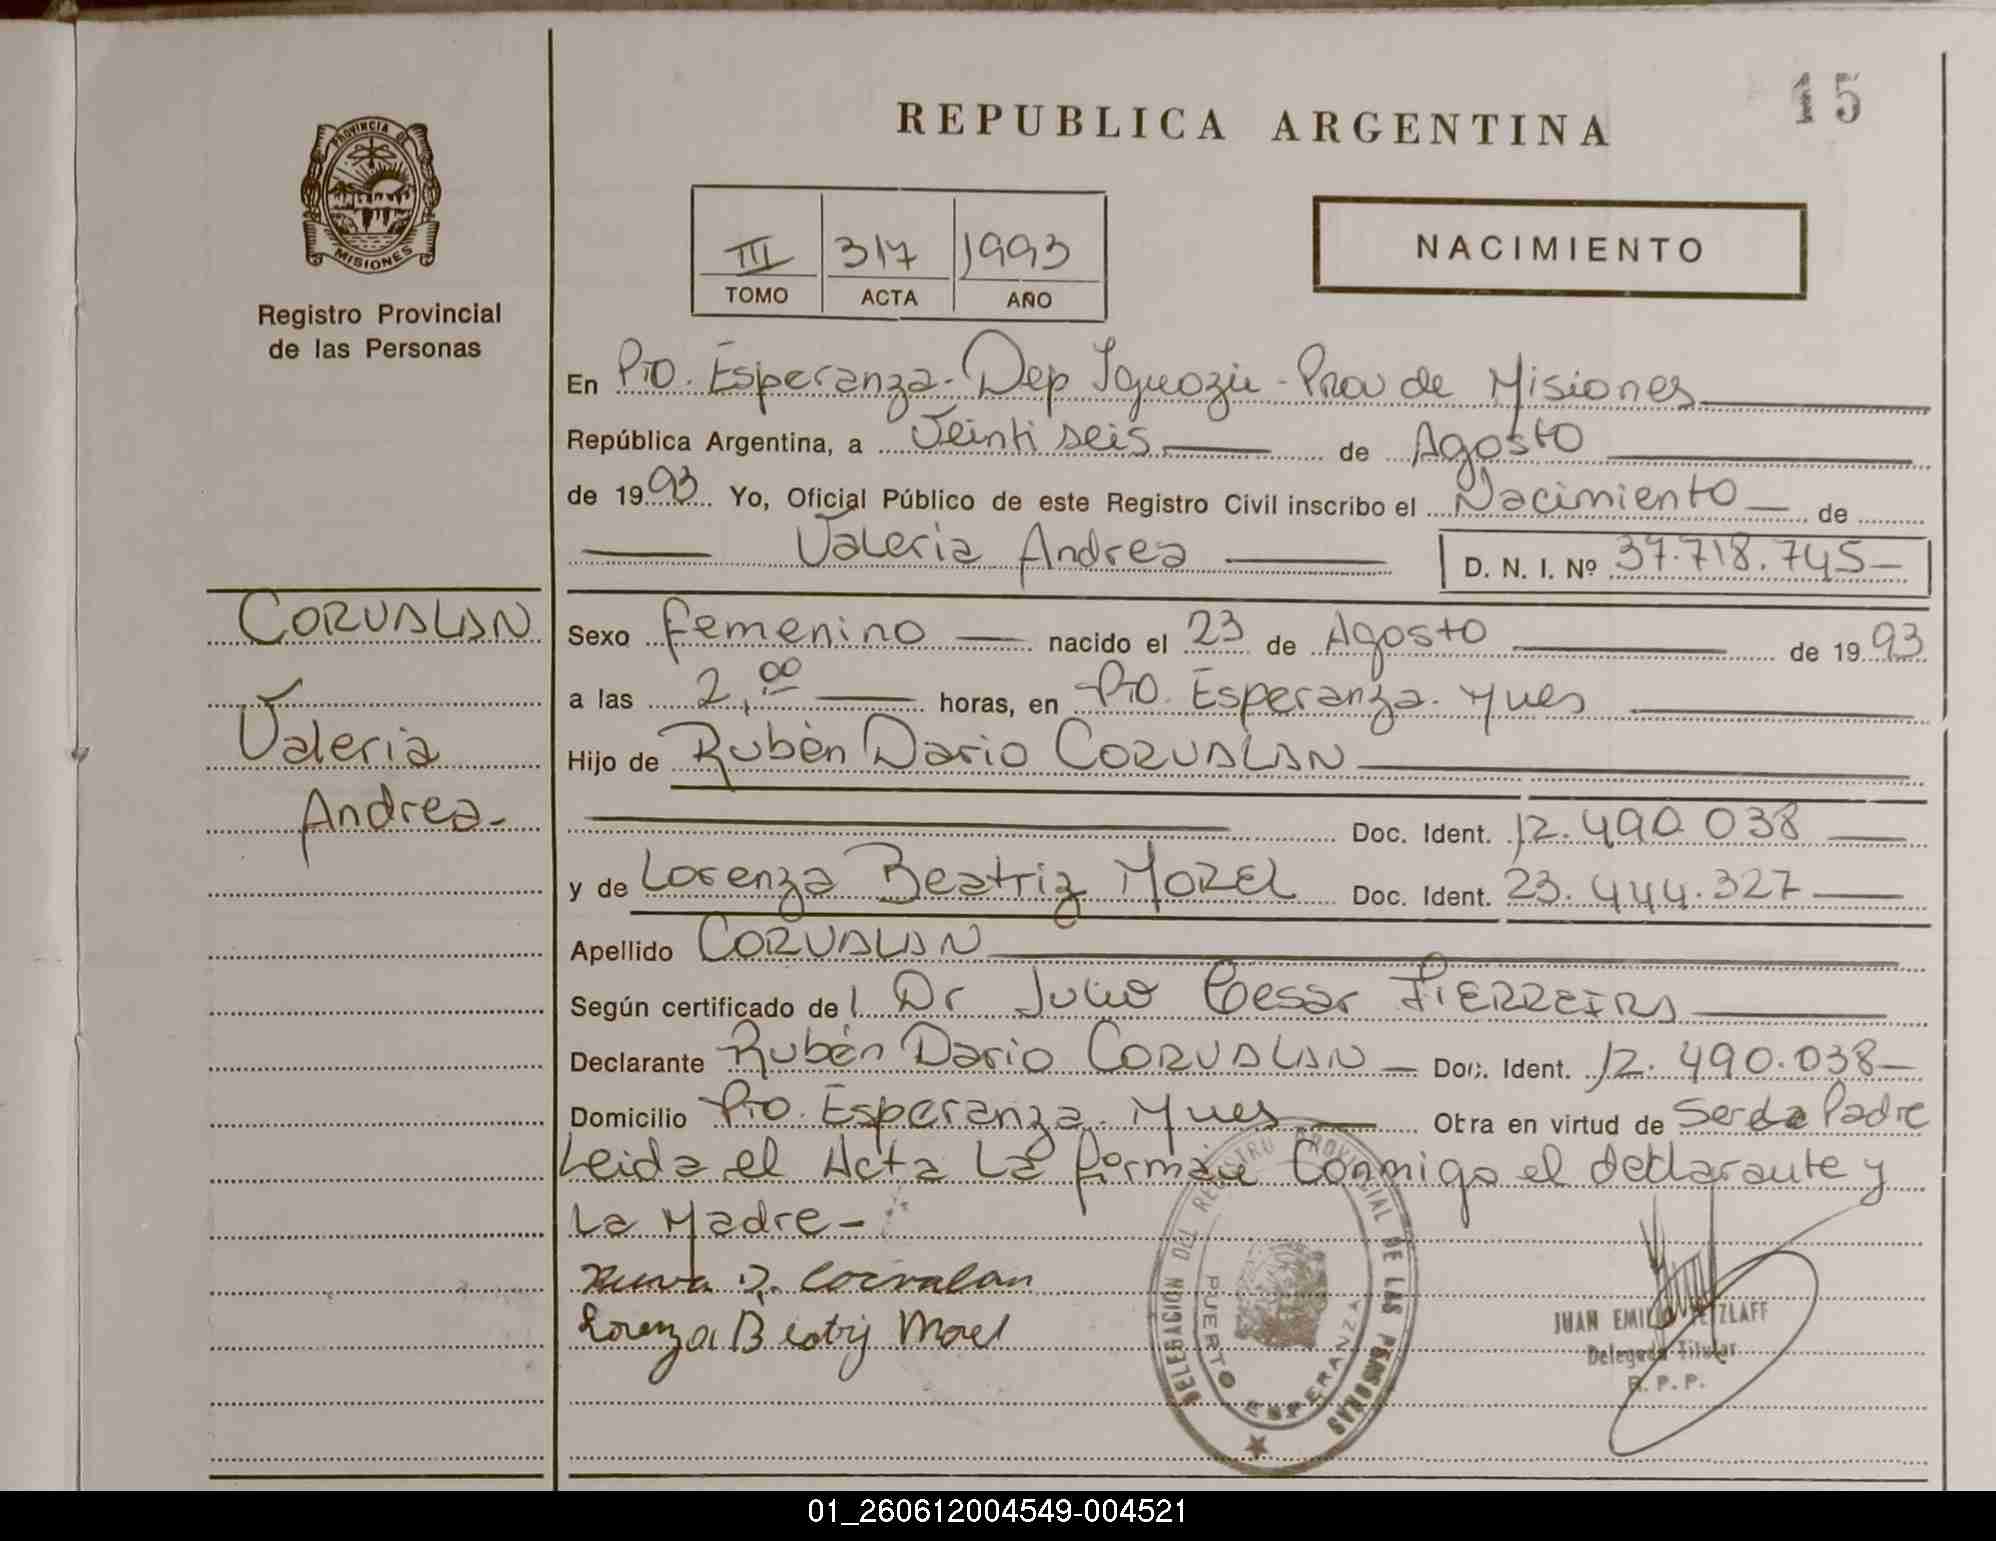 15
REPUBLICA ARGENTINA
PROVINCIA DE
MISIONES
Registro Provincial
de las Personas
III 317 1993
TOMO ACTA AÑO
NACIMIENTO
En Pto. Esperanza - Dep Iguazú - Prov de Misiones
República Argentina, a Veinti seis de Agosto
de 1993 Yo, Oficial Público de este Registro Civil inscribo el Nacimiento de
Valeria Andrea D. N. I. Nº 37.718.745
CORVALAN
Valeria
Andrea
Sexo Femenino nacido el 23 de Agosto de 1993
a las 2,00 horas, en Pto. Esperanza - Mnes
Hijo de Rubén Dario CORVALAN
Doc. Ident. 12.490.038
y de Lorenza Beatriz MOREL Doc. Ident. 23.444.327
Apellido CORVALAN
Según certificado del Dr Julio Cesar
Declarante Rubén Dario CORVALAN Doc. Ident. 12.490.038
Domicilio Pto. Esperanza - Mnes Obra en virtud de Ser de Padre
Leida el Acta La firman Conmigo el declarante y
La Madre -
D. Corvalan
Lorenza Beatriz Morel
DELEGACION DEL REGISTRO PROVINCIAL DE LAS PERSONAS
PUERTO ESPERANZA
JUAN EMILIO
Delegado Titular
R. P. P.
01_260612004549-004521